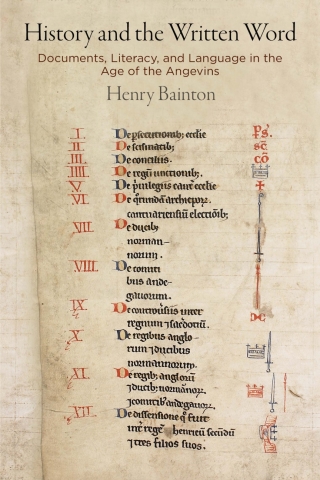 History and the Written Word
Documents, Literacy, and Language in the
Age of the Angevins
Henry Bainton
I. De psecutionib; ecclie
II. De scismatib;
III. De conciliis.
IIII. De regū unctionib;.
V. De pͥuilegiis cantͬ ecclie
VI. De archiepoꝝ.
cantuariensiū electiōib;.
VII. De ducib;
norman-
norum.
VIII. De comiti
bus ande-
gauorum.
IX. De inter
regnum ⁊ sacdotiū.
X. De regibus anglo-
rum ⁊ ducibus
normannorum.
XI. De regib; anglorū
⁊ ducib; normānoꝝ.
⁊ comitib; andegauoꝝ.
XII. De dissensione q̄ fuit
int̄ regē henricū secūdū
⁊ tres filios suos.